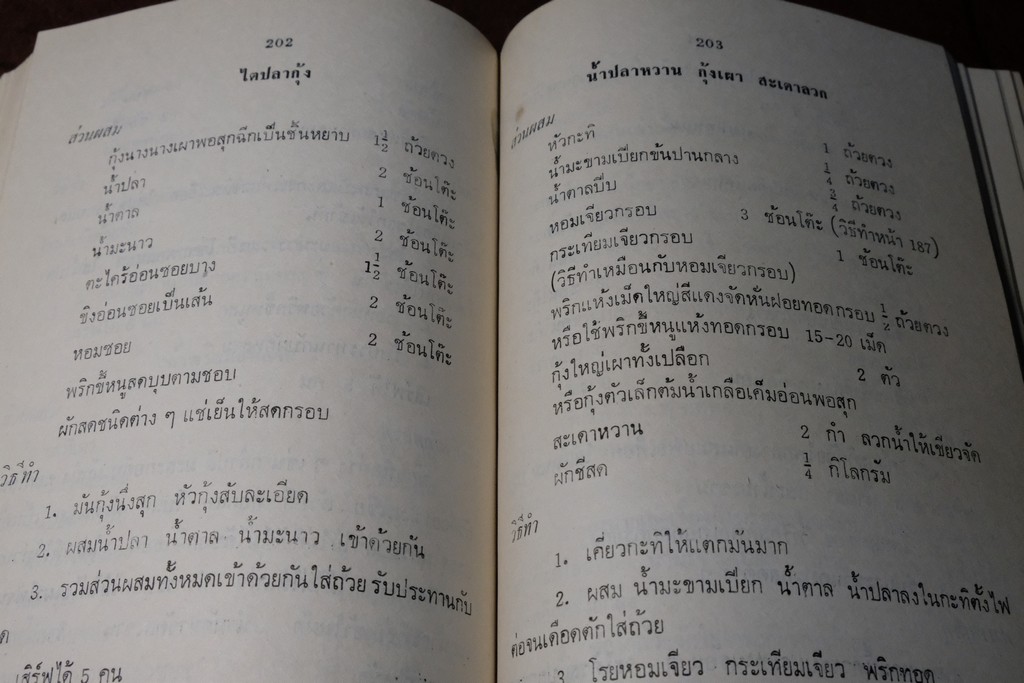 202
ไตปลากุ้ง
ส่วนผสม
กุ้งนางนางเผาพอสุกฉีกเป็นชิ้นหยาบ 1 1/2 ถ้วยตวง
น้ำปลา 2 ช้อนโต๊ะ
น้ำตาล 1 ช้อนโต๊ะ
น้ำมะนาว 2 ช้อนโต๊ะ
ตะไคร้อ่อนซอยบาง 1 1/2 ช้อนโต๊ะ
ขิงอ่อนซอยเป็นเส้น 2 ช้อนโต๊ะ
หอมซอย 2 ช้อนโต๊ะ
พริกขี้หนูสดบุบตามชอบ
ผักสดชนิดต่าง ๆ แช่เย็นให้สดกรอบ
วิธีทำ
1. มันกุ้งนึ่งสุก หัวกุ้งสับละเอียด
2. ผสมน้ำปลา น้ำตาล น้ำมะนาว เข้าด้วยกัน
3. รวมส่วนผสมทั้งหมดเข้าด้วยกันใส่ถ้วย รับประทานกับ
เสิร์ฟได้ 5 คน
203
น้ำปลาหวาน กุ้งเผา สะเดาลวก
ส่วนผสม
หัวกะทิ 1 ถ้วยตวง
น้ำมะขามเปียกข้นปานกลาง 1/4 ถ้วยตวง
น้ำตาลปีบ 3/4 ถ้วยตวง
หอมเจียวกรอบ 3 ช้อนโต๊ะ (วิธีทำหน้า 187)
กระเทียมเจียวกรอบ 1 ช้อนโต๊ะ
(วิธีทำเหมือนกับหอมเจียวกรอบ)
พริกแห้งเม็ดใหญ่สีแดงจัดหั่นฝอยทอดกรอบ 1/2 ถ้วยตวง
หรือใช้พริกขี้หนูแห้งทอดกรอบ 15-20 เม็ด
กุ้งใหญ่เผาทั้งเปลือก 2 ตัว
หรือกุ้งตัวเล็กต้มน้ำเกลือเค็มอ่อนพอสุก
สะเดาหวาน 2 กำ ลวกน้ำให้เขียวจัด
ผักชีสด 1/4 กิโลกรัม
วิธีทำ
1. เคี่ยวกะทิให้แตกมันมาก
2. ผสม น้ำมะขามเปียก น้ำตาล น้ำปลาลงในกะทิตั้งไฟ
ต่อจนเดือดตักใส่ถ้วย
3. โรยหอมเจียว กระเทียมเจียว พริกทอด